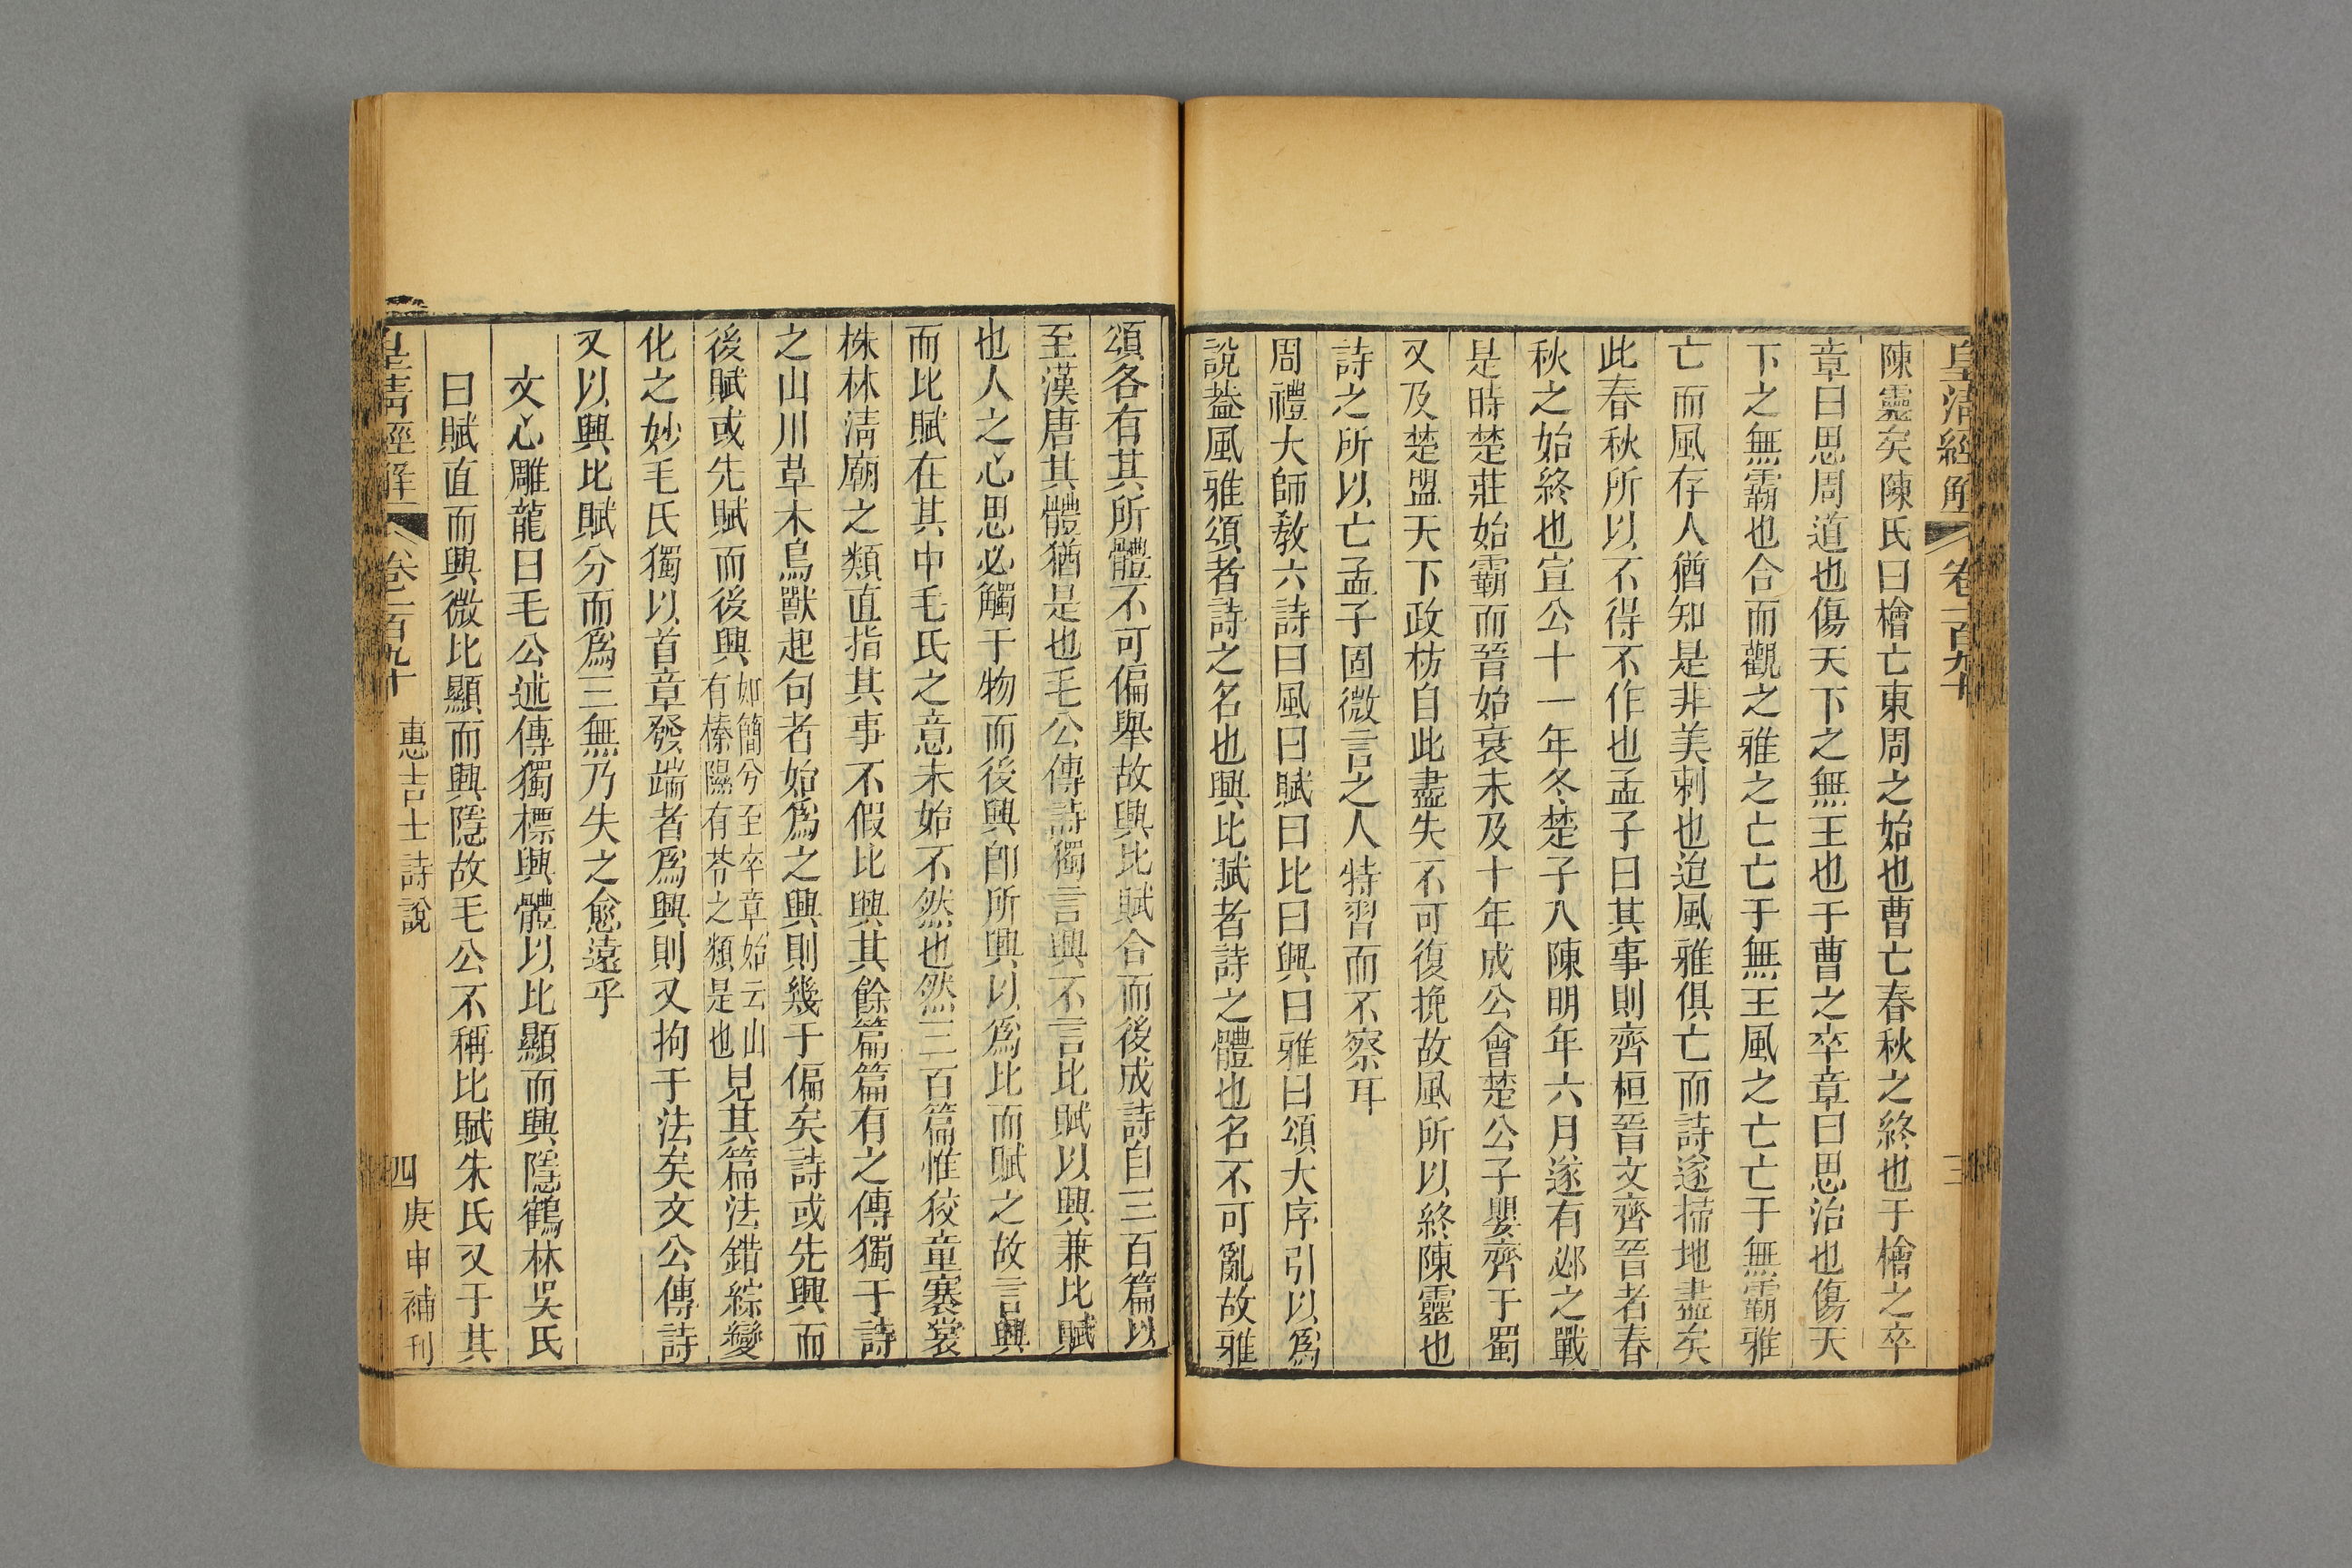 皇清經解 卷一百九十 三
陳靈矣陳氏曰檜亡東周之始也曹亡春秋之終也于檜之卒
章曰思周道也傷天下之無王也于曹之卒章曰思治也傷天
下之無霸也合而觀之雅之亡亡于無王風之亡亡于無霸雅
亡而風存人猶知是非美刺也迨風雅俱亡而詩遂掃地盡矣
此春秋所以不得不作也孟子曰其事則齊桓晉文齊晉者春
秋之始終也宣公十一年冬楚子入陳明年六月遂有邲之戰
是時楚莊始霸而晉始衰未及十年成公會楚公子嬰齊于蜀
又及楚盟天下政枋自此盡失不可復挽故風所以終陳靈也
詩之所以亡孟子固微言之人特習而不察耳
周禮大師敎六詩曰風曰賦曰比曰興曰雅曰頌大序引以爲
說葢風雅頌者詩之名也興比賦者詩之體也名不可亂故雅
頌各有其所體不可偏舉故興比賦合而後成詩自三百篇以
至漢唐其體猶是也毛公傳詩獨言興不言比賦以興兼比賦
也人之心思必觸于物而後興卽所興以爲比而賦之故言興
而比賦在其中毛氏之意未始不然也然三百篇惟狡童褰裳
株林淸廟之類直指其事不假比興其餘篇篇有之傳獨于詩
之山川草木鳥獸起句者始爲之興則幾于偏矣詩或先興而
後賦或先賦而後興如簡兮至卒章始云山有榛隰有苓之類是也見其篇法錯綜變
化之妙毛氏獨以首章發端者爲興則又拘于法矣文公傳詩
又以興比賦分而爲三無乃失之愈遠乎
文心雕龍曰毛公述傳獨標興體以比顯而興隱鶴林吳氏
曰賦直而興微比顯而興隱故毛公不稱比賦朱氏又于其
皇清經解 卷一百九十 惠吉士詩說 四 庚申補刊